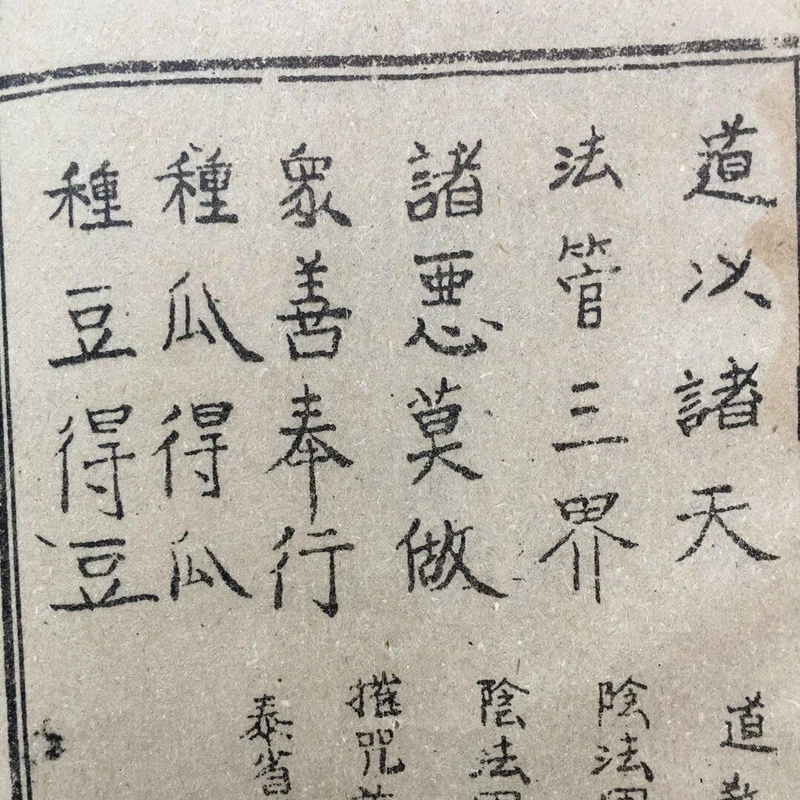 道以諸天
法管三界
諸惡莫做
眾善奉行
種瓜得瓜
種豆得豆
道教
陰法
陰法
摧咒
泰省